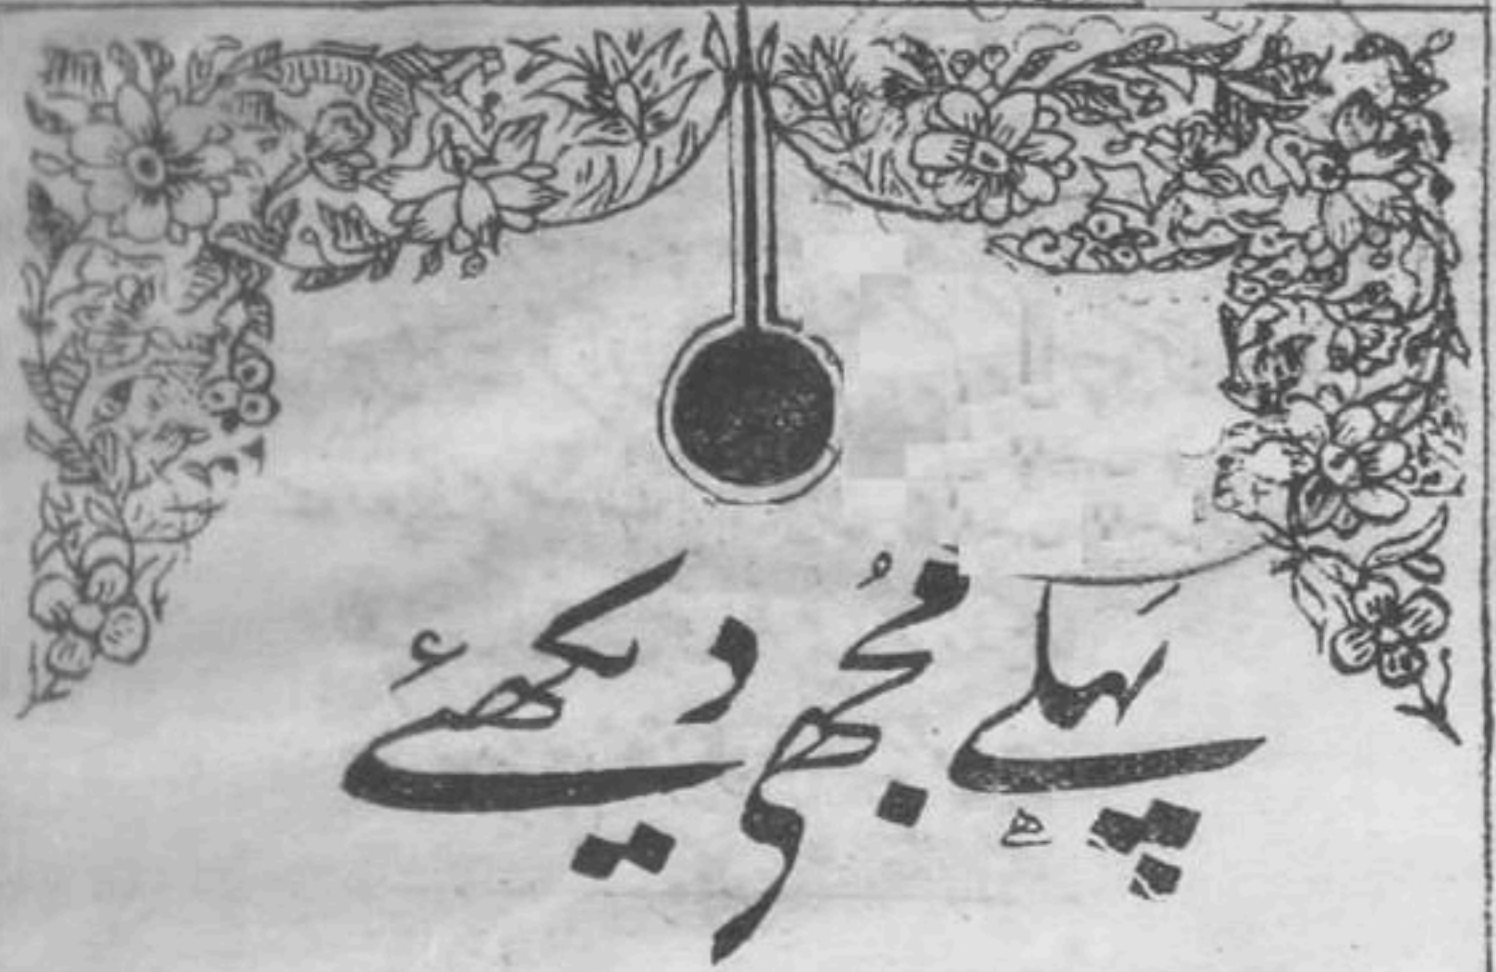 پہلے مُجھے دیکھئے